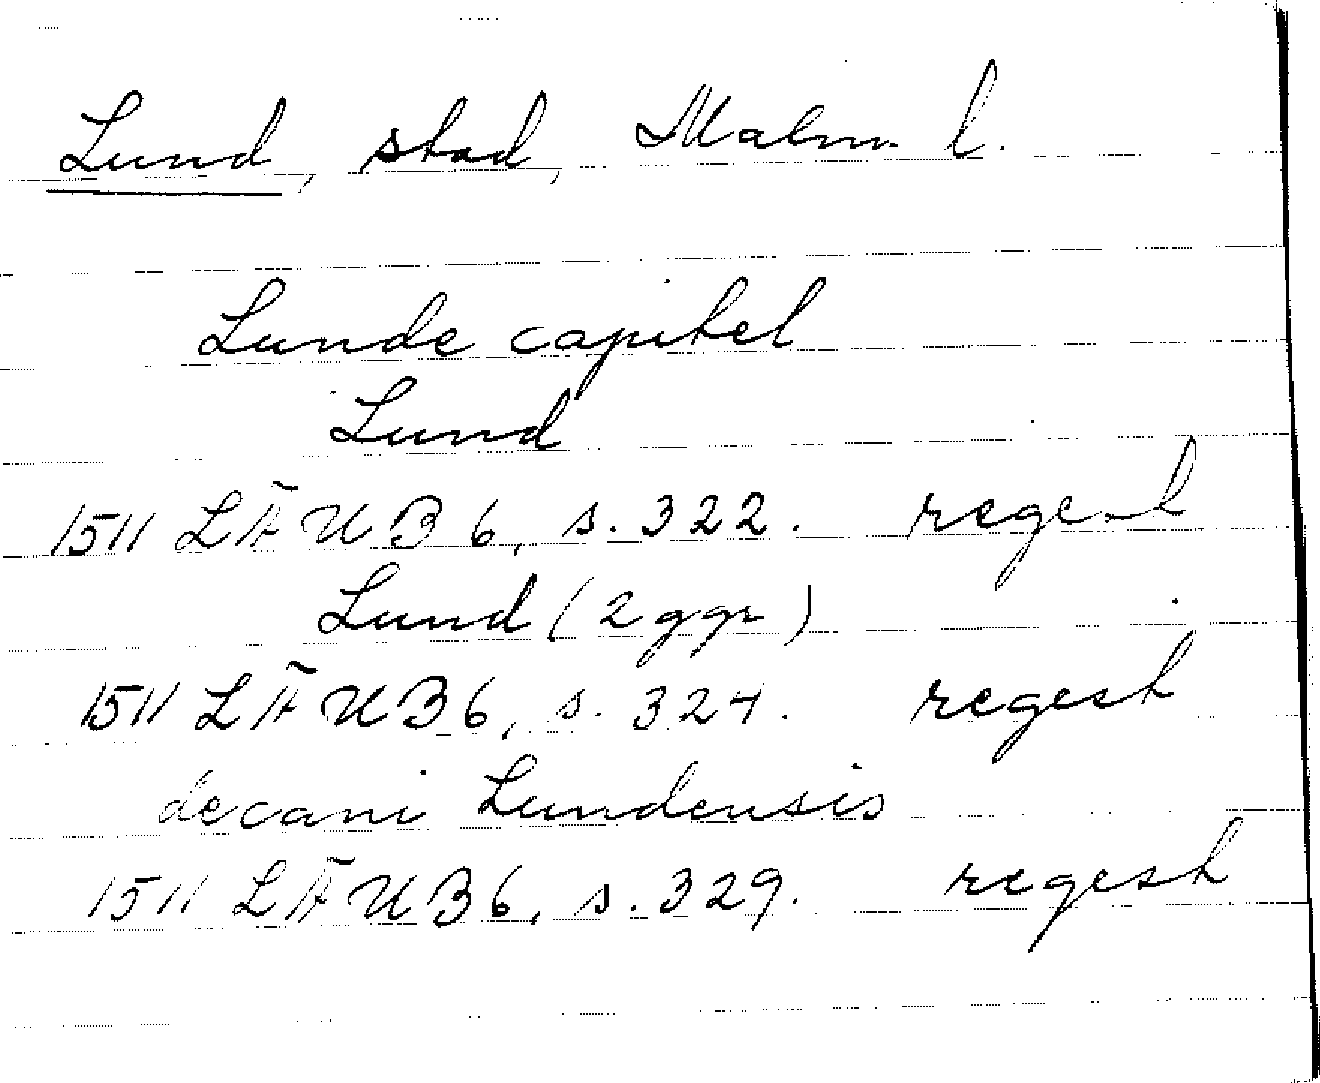 Lund, stad, Malm. l.
Lunde capitel
Lund
1511 LÄUB 6, s. 322. regest
Lund (2 ggr)
1511 LÄUB 6, s. 324. regest
decani Lundensis
1511 LÄUB 6, s. 329. regest